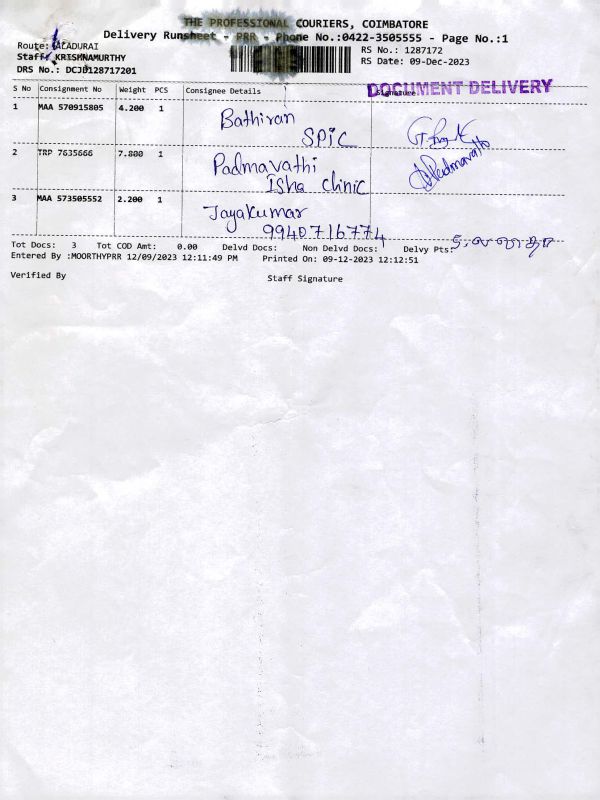 THE PROFESSIONAL COURIERS, COIMBATORE
Delivery Runsheet - PRR - Phone No.:0422-3505555 - Page No.:1
Route: ALADURAI
RS No.: 1287172
Staff: KRISHNAMURTHY
RS Date: 09-Dec-2023
DRS No.: DCJD128717201
DOCUMENT DELIVERY
S No Consignment No Weight PCS Consignee Details Signature
1 MAA 570915805 4.200 1 Bathiran
SPIC
2 TRP 7635666 7.800 1 Padmavathi
Isha clinic
Padmavathi
3 MAA 573505552 2.200 1 Jayakumar
9940716774
Tot Docs: 3 Tot COD Amt: 0.00 Delvd Docs: Non Delvd Docs: Delvy Pts:
Entered By :MOORTHYPRR 12/09/2023 12:11:49 PM Printed On: 09-12-2023 12:12:51
Verified By Staff Signature